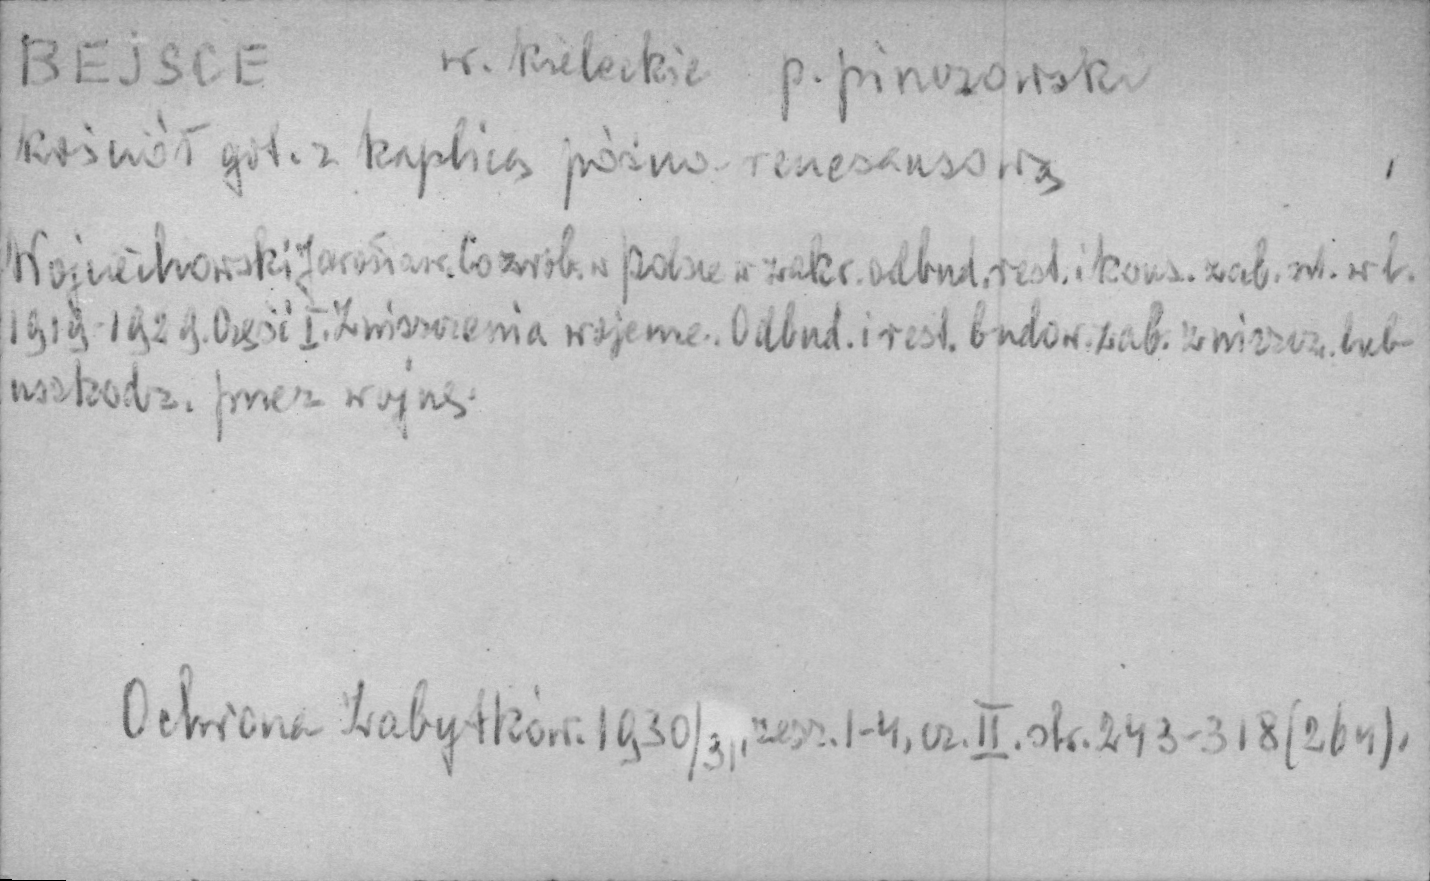 BEJSCE w. kieleckie p. pinczowski
kościół got. z kaplicą późno-renesansową
Wojciechowski Jarosław. Co zrob. w Polsce w zakr. odbud., rest. i kons. zab. szt. w l.
1919-1929. Część I. Zniszczenia wojenne. Odbud. i rest. budow. zab. zniszcz. lub
uszkodz. przez wojnę.
Ochrona Zabytków. 1930/31, zesz. 1-4, cz. II. str. 243-318 (264).